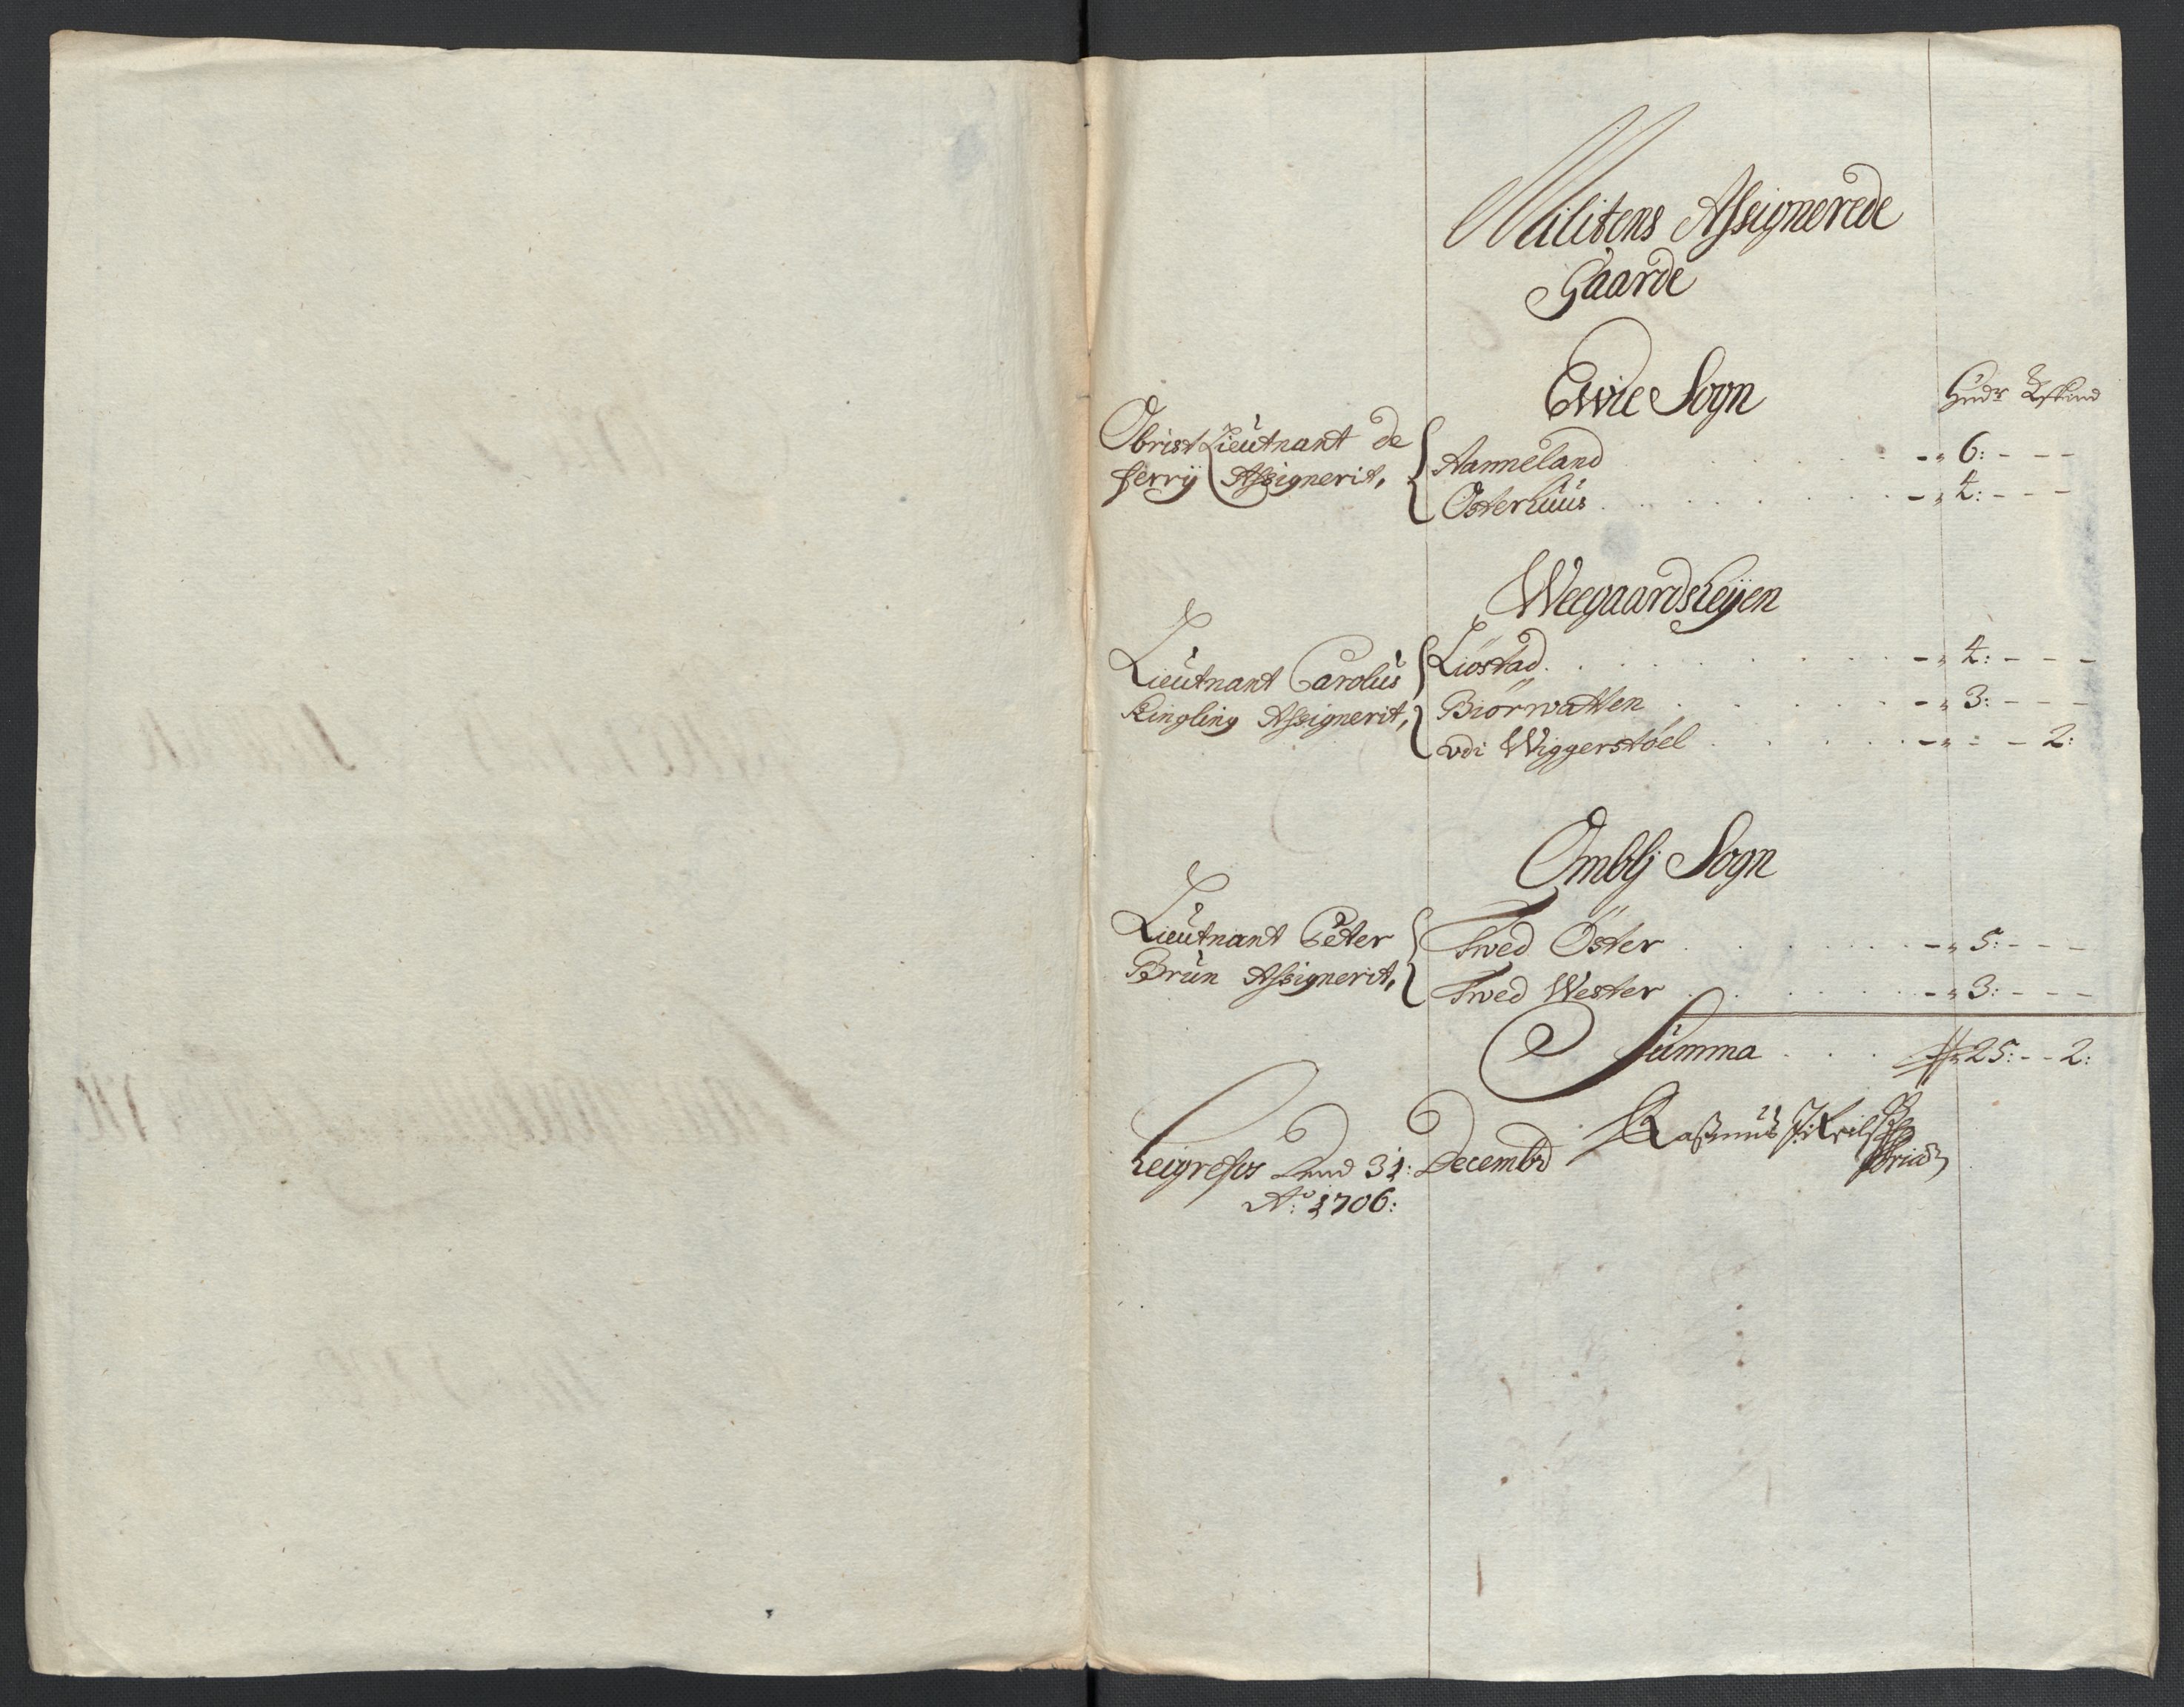 Militens Assignerede
Gaarde
Ewie Sogn
Hudr
Obrist Lieutnant de
Ferry Assignerit,
Aanneland . . . . . - „ 6: - - -
Osterhuus . . . . . - „ 4: - - -
Weegaardsheyen
Lieutnant Carolus
Kingling Assignerit,
Liöstad . . . . . - „ 4: - - -
Biörwatten . . . . . - „ 3: - - -
udi Wiggerstöel . . . . . - „ - - 2:
Ombli Sogn
Lieutnant Peter
Brun Assignerit,
Twed Öster . . . . . - „ 5: - - -
Twed Wester . . . . . - „ 3: - - -
Summa . . . „ 25: - - 2:
Leigrefos 31: Decembr
Ao: 1706:
Rasmus